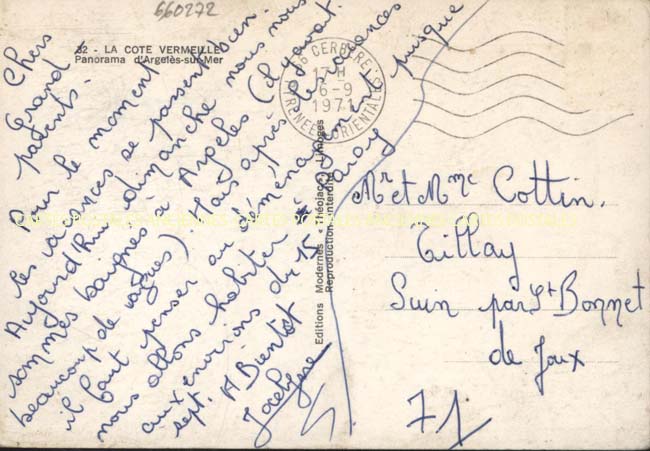 660272
32 - LA COTE VERMEILLE
Panorama d'Argelès-sur-Mer
Chers
Grand
parents.
Pour le moment
les vacances se passent bien.
Aujourd'hui dimanche nous nous
sommes baignés à Argelès (il y avait
beaucoup de vagues) Mais après les vacances
il faut penser au déménagement puisque
nous allons habiter à
aux environs du 15
sept. A Bientôt
Jocelyne
66 CERBERE
17 H
6-9
1971
PYRENEES ORIENTALES
Editions Modernes « Théojac » Limoges
Reproduction interdite
Mr et Mme Cottin.
Tillay
Suin par St Bonnet
de Joux
71